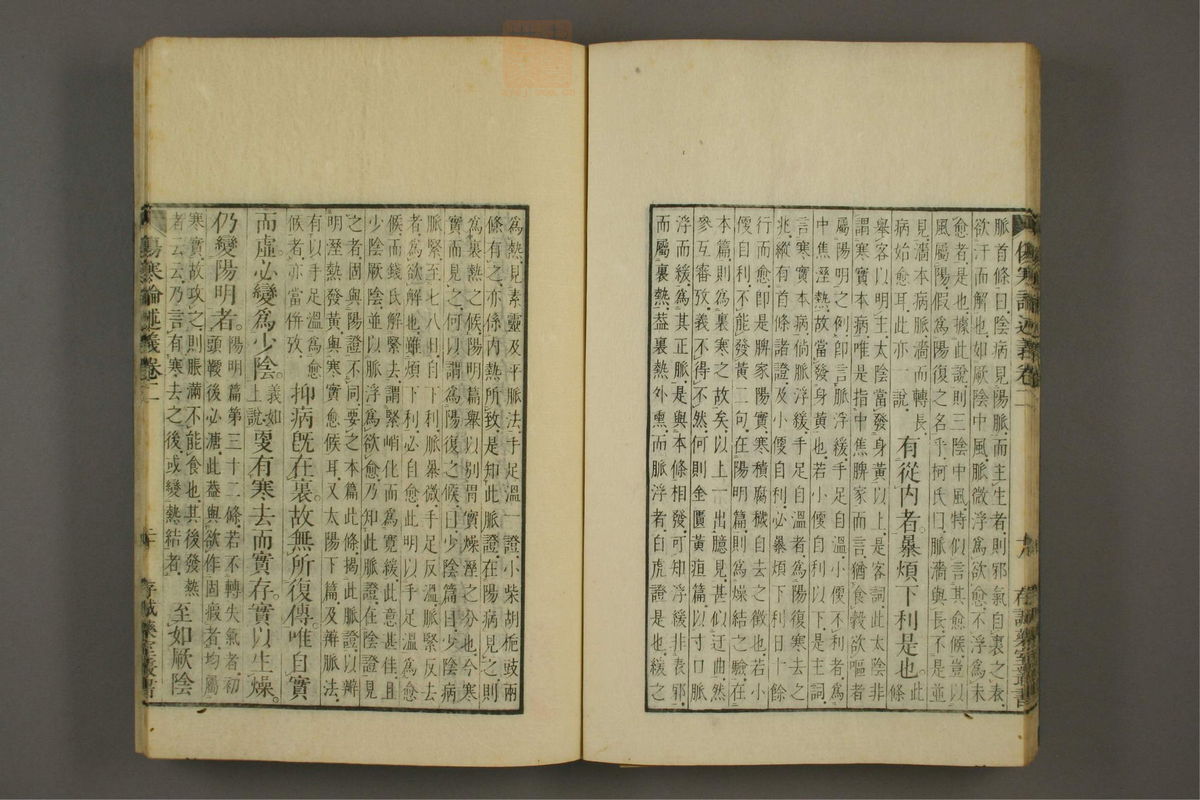 脈首條曰陰病見陽脈而主生者則邪氣自裏之表
欲汗而解也如厥陰中風脈微浮為欲愈不浮為未
愈者是也據此說則三陰中風特似言其愈候豈以
風屬陽假為陽復之名乎柯氏曰脈濇與長不是並
見濇本病脈濇而轉長
病始愈耳此亦一說 有從內者暴煩下利是也 此條
舉客以明主太陰當發身黃以上是客詞此太陰非
謂寒實本病唯是指中焦脾家而言猶食穀欲嘔者
屬陽明之例卽言脈浮緩手足自溫小便不利者為
中焦溼熱故當發身黃也若小便自利以下是主詞
言寒實本病倘脈浮緩手足自溫者為陽復寒去之
兆縱有首條諸證及小便自利必暴煩下利日十餘
行而愈卽是脾家陽實寒積腐穢自去之徵也若小
便自利不能發黃二句在陽明篇則為燥結之驗在
本篇則為裏寒之故矣以上一出臆見甚似迂曲然
參互審攷義不得不然何則金匱黃疸篇以寸口脈
浮而緩為其正脈是與本條相發可知浮緩非表邪
而屬裏熱葢裏熱外熏而脈浮者白虎證是也緩之
傷寒論述義卷二
存誠藥室叢書
為熱見素靈及平脈法手足溫一證小柴胡梔豉兩
條有之亦係內熱所致是知此脈證在陽病見之則
為裏熱之候陽明篇舉以別胃實燥溼之分也今寒
實而見之何以謂為陽復之候曰少陰篇曰少陰病
脈緊至七八日自下利脈暴微手足反溫脈緊反去
者為欲解也雖煩下利必自愈此明以手足溫為愈
候而錢氏解緊去謂緊峭化而為寬緩此意甚佳且
少陰厥陰並以脈浮為欲愈乃知此脈證在陰證見
之者固與陽證不同要之本篇此條揭此脈證以辨
明溼熱發黃與寒實愈候耳又太陽下篇及辨脈法
有以手足溫愈
候者亦當併攷 抑病旣在裏故無所復傳唯自實
而虛必變為少陰 義如上說 更有寒去而實存實以生燥
仍變陽明者 陽明篇第三十二條若不轉失氣者初
頭鞕後必溏此葢與欲作固瘕者均屬
寒實故攻之則脹滿不能食也其後發熱
者云云乃言有寒去之後或變熱結者 至如厥陰
傷寒論述義卷二
存誠藥室叢書